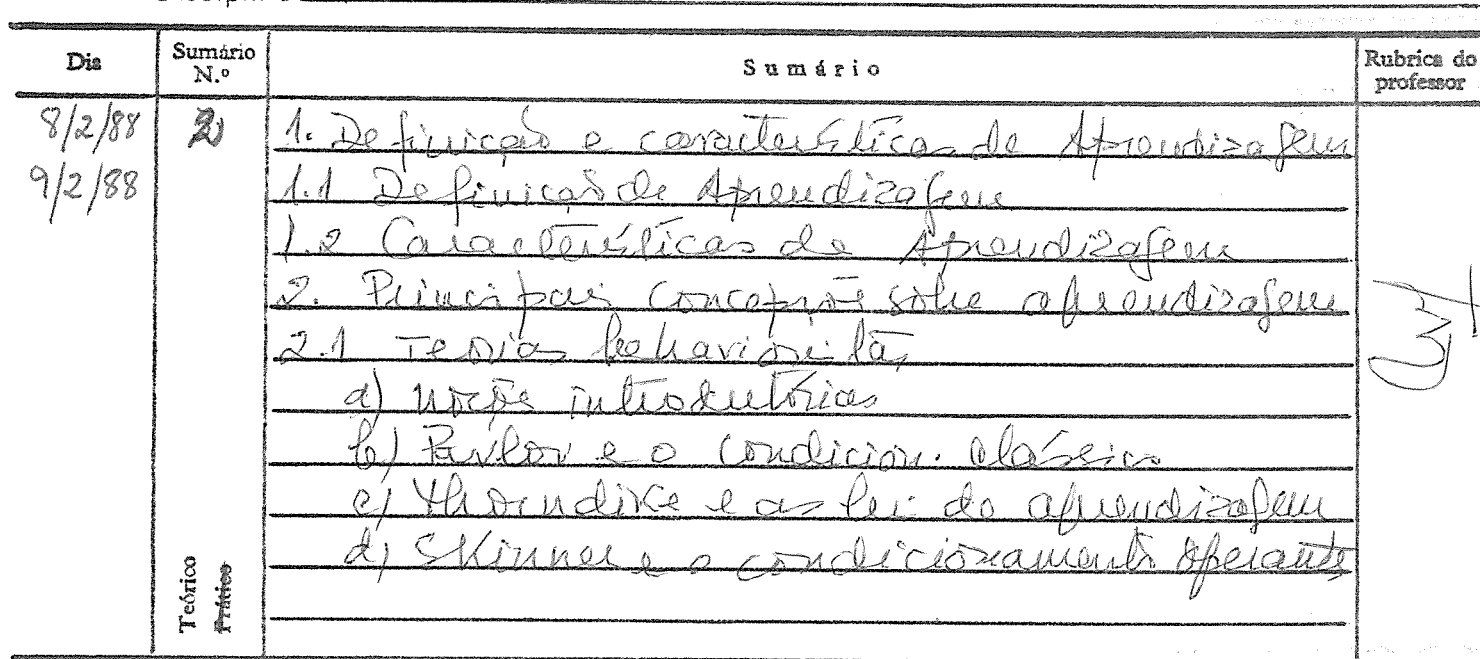 Dia Sumário N.º Sumário Rubrica do professor
8/2/88 2 1. Definição e características da Aprendizagem
9/2/88 1.1 Definição de Aprendizagem
1.2 Características da Aprendizagem
2. Principais concepções sobre aprendizagem
2.1 Teorias behavioristas
a) noções introdutórias
b) Pavlov e o condicion. clássico
c) Thorndike e as leis da aprendizagem
d) Skinner e o condicionamento operante
Teórico
Prático